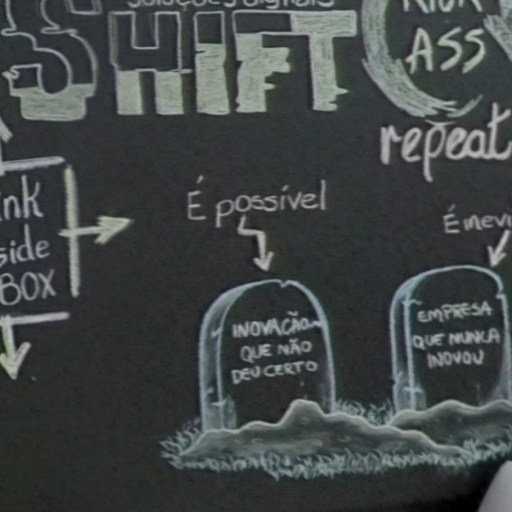 soluções digitais
SHIFT
KICK
ASS
repeat
side
BOX
É possível
INOVAÇÃO
QUE NÃO
DEU CERTO
EMPRESA
QUE NUNCA
INOVOU